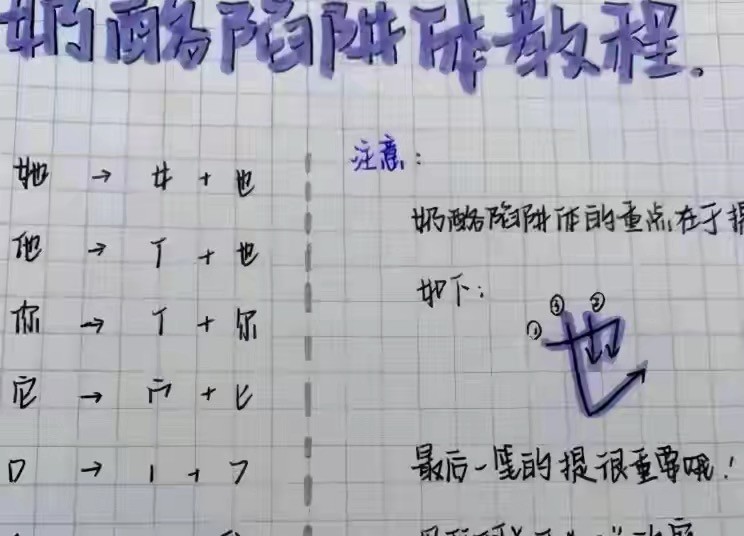 奶酪陷阱体教程。
她 → 女 + 也
他 → 亻 + 也
你 → 亻 + 尔
它 → 宀 + 匕
口 → 丨 + ㇆
注意：
奶酪陷阱体的重点在于提
如下：
① ③ ②
也
最后一笔的提很重要哦！